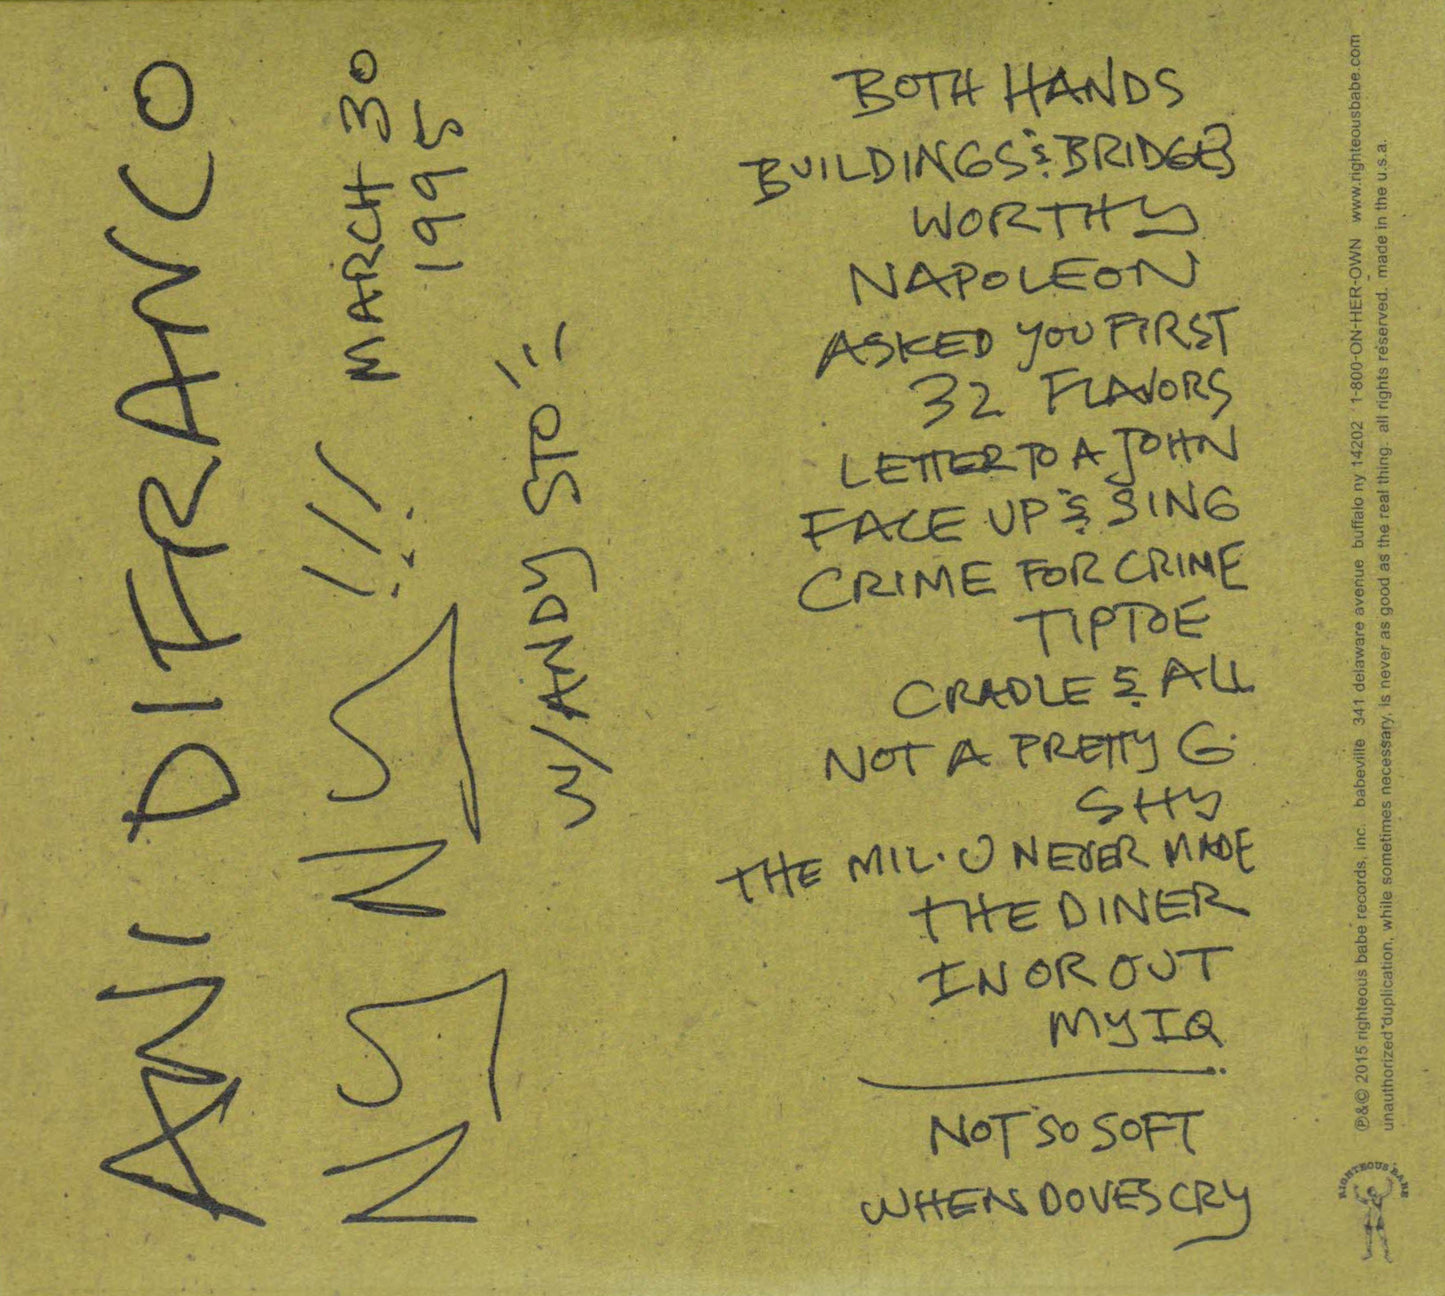 ANI DIFRANCO
NY NY !!!
MARCH 30
1995
W/ANDY STO'''
BOTH HANDS
BUILDINGS & BRIDGES
WORTHY
NAPOLEON
ASKED YOU FIRST
32 FLAVORS
LETTER TO A JOHN
FACE UP & SING
CRIME FOR CRIME
TIPTOE
CRADLE & ALL
NOT A PRETTY G
SHY
THE MIL. U NEVER MADE
THE DINER
IN OR OUT
MY IQ
NOT SO SOFT
WHEN DOVES CRY
℗&© 2015 righteous babe records, inc. babeville 341 delaware avenue buffalo ny 14202 1-800-ON-HER-OWN www.righteousbabe.com
unauthorized duplication, while sometimes necessary, is never as good as the real thing. all rights reserved. made in the u.s.a.
RIGHTEOUS BABE